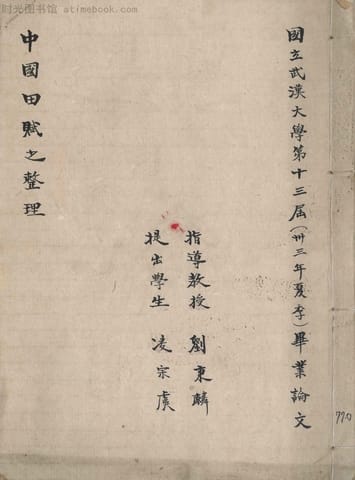 时光图书馆 atimebook.com
國立武漢大學第十三屆(卅三年夏季)畢業論文
指導教授 劉秉麟
提出學生 凌宗虞
中國田賦之整理
770